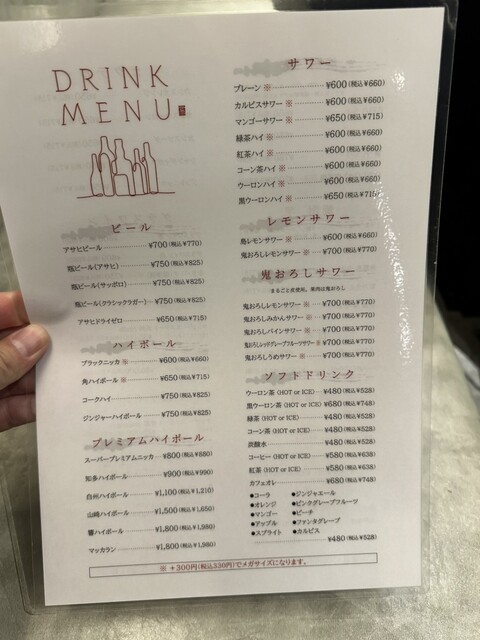 DRINK
MENU
ビール
アサヒビール ¥700(税込¥770)
瓶ビール(アサヒ) ¥750(税込¥825)
瓶ビール(サッポロ) ¥750(税込¥825)
瓶ビール(クラシックラガー) ¥750(税込¥825)
アサヒドライゼロ ¥650(税込¥715)
ハイボール
ブラックニッカ ※ ¥600(税込¥660)
角ハイボール ※ ¥650(税込¥715)
コークハイ ¥750(税込¥825)
ジンジャーハイボール ¥750(税込¥825)
プレミアムハイボール
スーパープレミアムニッカ ¥800(税込¥880)
知多ハイボール ¥900(税込¥990)
白州ハイボール ¥1,100(税込¥1,210)
山崎ハイボール ¥1,500(税込¥1,650)
響ハイボール ¥1,800(税込¥1,980)
マッカラン ¥1,800(税込¥1,980)
サワー
プレーン ※ ¥600(税込¥660)
カルピスサワー ※ ¥600(税込¥660)
マンゴーサワー ※ ¥650(税込¥715)
緑茶ハイ ※ ¥600(税込¥660)
紅茶ハイ ※ ¥600(税込¥660)
コーン茶ハイ ※ ¥600(税込¥660)
ウーロンハイ ※ ¥600(税込¥660)
黒ウーロンハイ ※ ¥650(税込¥715)
レモンサワー
鳥レモンサワー ※ ¥600(税込¥660)
鬼おろしレモンサワー ※ ¥700(税込¥770)
鬼おろしサワー
まるごと氷使用。果肉は鬼おろし
鬼おろしレモンサワー ※ ¥700(税込¥770)
鬼おろしみかんサワー ※ ¥700(税込¥770)
鬼おろしパインサワー ※ ¥700(税込¥770)
鬼おろしレッドグレープフルーツサワー ※ ¥700(税込¥770)
鬼おろしうめサワー ※ ¥700(税込¥770)
ソフトドリンク
ウーロン茶 (HOT or ICE) ¥480(税込¥528)
黒ウーロン茶 (HOT or ICE) ¥680(税込¥748)
緑茶 (HOT or ICE) ¥480(税込¥528)
コーン茶 (HOT or ICE) ¥480(税込¥528)
炭酸水 ¥480(税込¥528)
コーヒー (HOT or ICE) ¥580(税込¥638)
紅茶 (HOT or ICE) ¥580(税込¥638)
カフェオレ ¥680(税込¥748)
●コーラ ●ジンジャエール
●オレンジ ●ピンクグレープフルーツ
●マンゴー ●ピーチ
●アップル ●ファンタグレープ
●スプライト ●カルピス
¥480(税込¥528)
※ +300円(税込330円)でメガサイズになります。